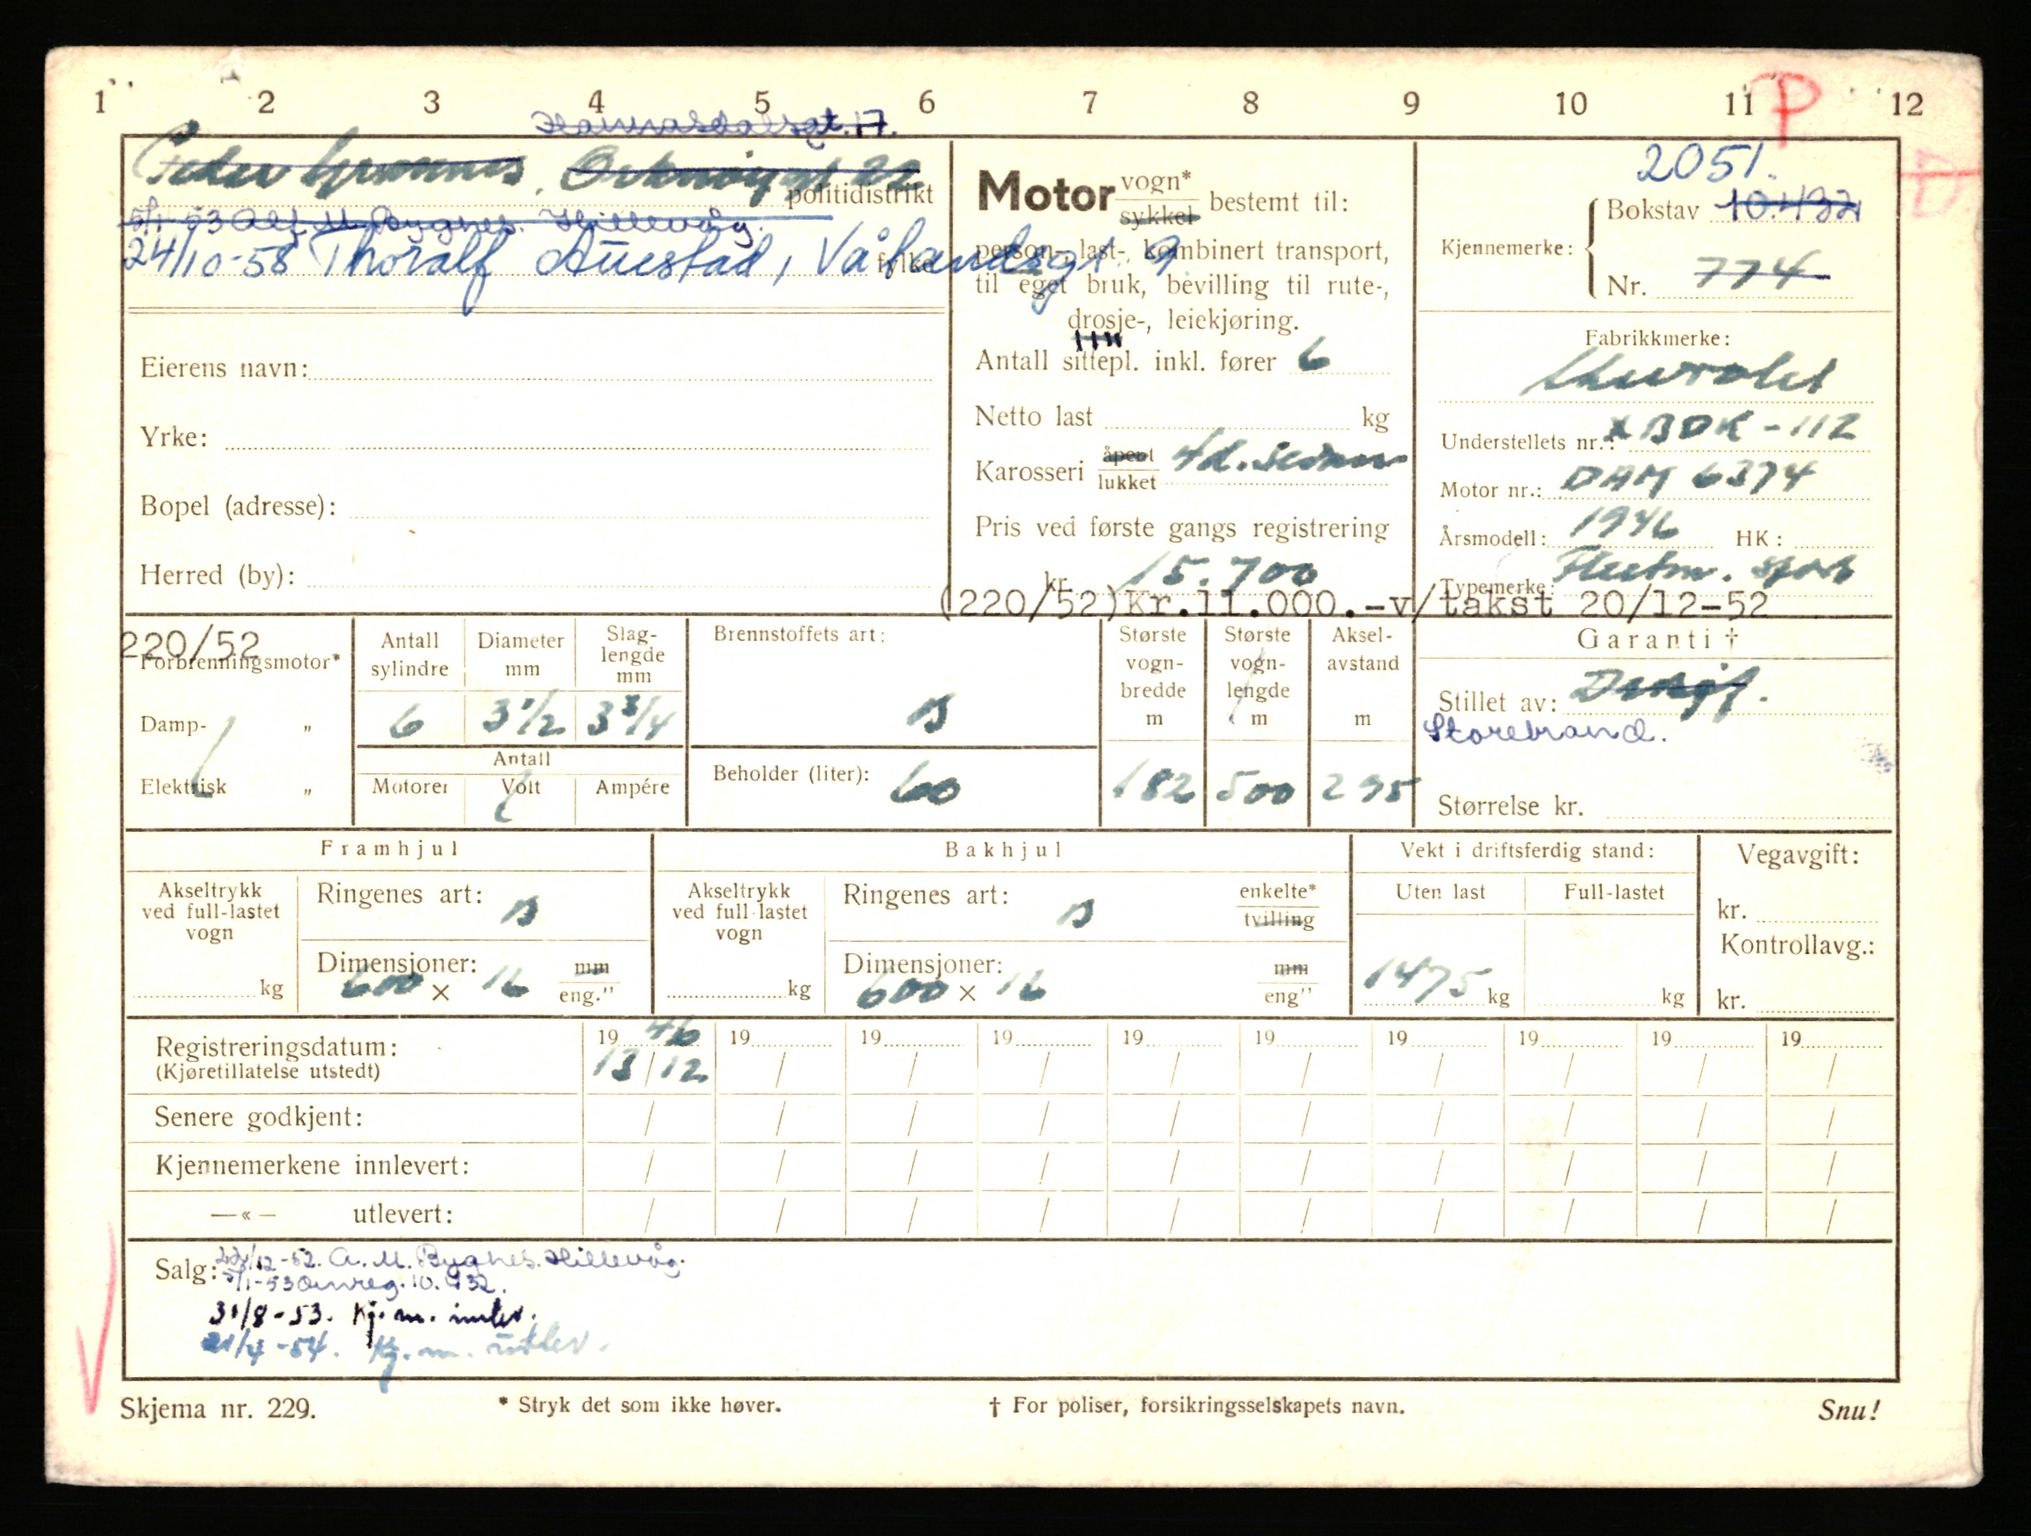 1 2 3 4 5 6 7 8 9 10 11 12
P
gt. 17.
Peder
politidistrikt
5/1-53 Alf M. Bygnes. Hillevåg.
24/10-58 Thoralf Auestad, Vålandsgt. 9
fylke
Eierens navn:
Yrke:
Bopel (adresse):
Herred (by):
Motor vogn* sykkel bestemt til:
person-, last-, kombinert transport,
til eget bruk, bevilling til rute-,
drosje-, leiekjøring.
Antall sittepl. inkl. fører 6
Netto last kg
Karosseri åpent lukket 4d. sedan
Pris ved første gangs registrering
kr. 15.700
(220/52)Kr.11.000.-v/takst 20/12-52
2051.
Kjennemerke: Bokstav 10.432
Nr. 774
Fabrikkmerke:
Chevrolet
Understellets nr.: x BDK-112
Motor nr.: DAM 6374
Årsmodell: 1946 HK:
Typemerke: Fleetm. sport
220/52
Forbrenningsmotor*
Damp- „
Elektrisk „
Antall sylindre 6
Diameter mm 3 1/2
Slag-lengde mm 3 3/4
Antall
Motorer Volt Ampére
Brennstoffets art: B
Beholder (liter): 60
Største vogn-bredde m 182
Største vogn-lengde m 500
Aksel-avstand m 295
Garanti †
Stillet av:
Storebrand.
Størrelse kr.
Framhjul
Akseltrykk ved full-lastet vogn kg
Ringenes art: B
Dimensjoner: 600 × 16 mm eng."
Bakhjul
Akseltrykk ved full-lastet vogn kg
Ringenes art: B enkelte* tvilling
Dimensjoner: 600 × 16 mm eng"
Vekt i driftsferdig stand:
Uten last Full-lastet
1475 kg kg
Vegavgift:
kr.
Kontrollavg.:
kr.
Registreringsdatum: 1946 19 19 19 19 19 19 19 19 19
(Kjøretillatelse utstedt) 13/12 / / / / / / / / /
Senere godkjent: / / / / / / / / / /
Kjennemerkene innlevert: / / / / / / / / / /
—«— utlevert: / / / / / / / / / /
Salg: 22/12-52. A. M. Bygnes. Hillevåg.
5/1-53 Omreg. 10.432.
31/8-53. Kj.m. innlev.
21/4-54. Kj.m. utlev.
Skjema nr. 229. * Stryk det som ikke høver. † For poliser, forsikringsselskapets navn. Snu!